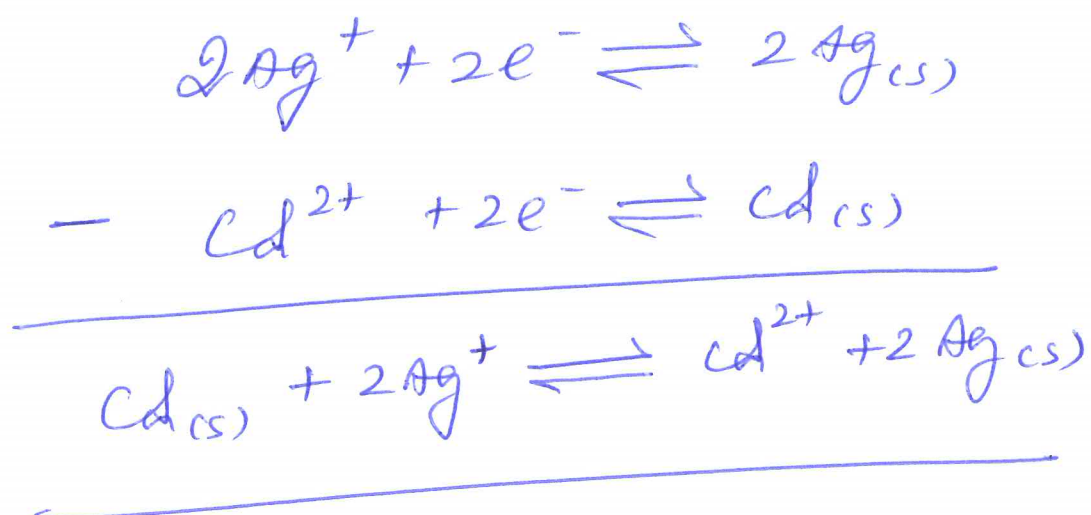 2Ag⁺ + 2e⁻ ⇌ 2Ag(s)
− Cd²⁺ + 2e⁻ ⇌ Cd(s)
Cd(s) + 2Ag⁺ ⇌ Cd²⁺ + 2Ag(s)